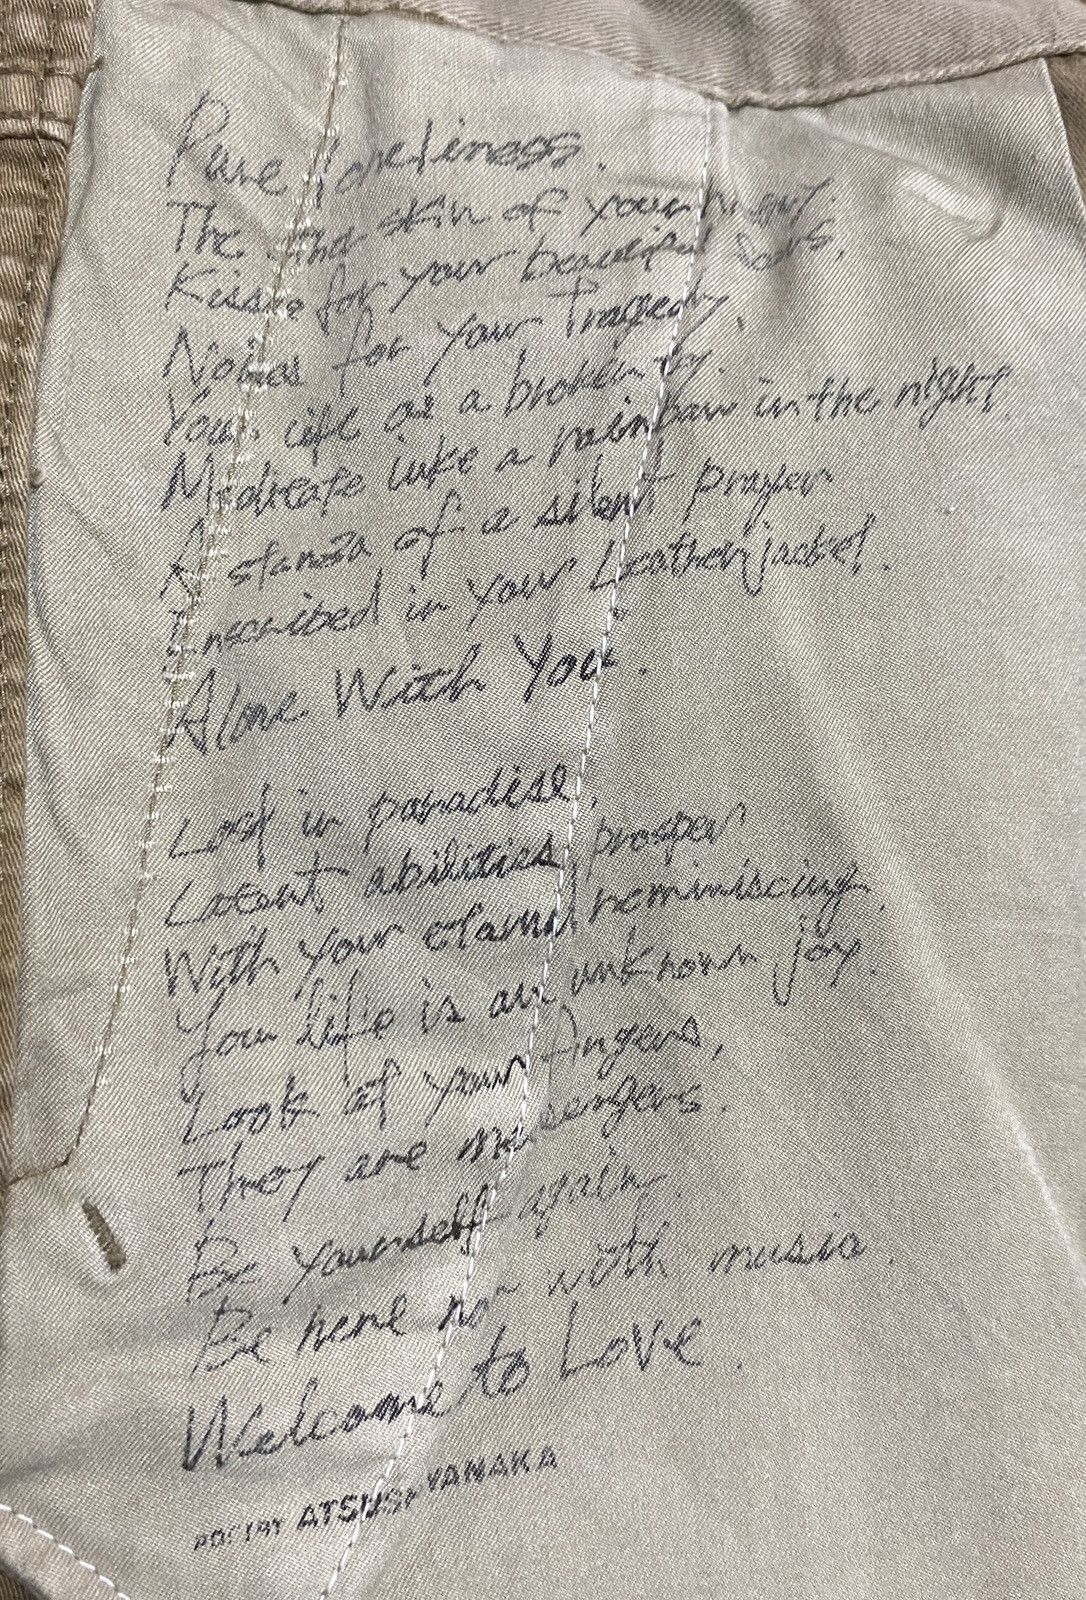 Pure loneliness.
The skin of your
Kisses for your beautiful
Noises for your Tragedy.
Your life as a broken toy.
Meditate like a rainbow in the night.
A stanza of a silent prayer
Inscribed in your Leather jacket.
Alone With You.
Lost in paradise,
Latent abilities prosper
With your reminiscing.
Your life is an unknown joy.
Look at your fingers,
They are messengers.
Be yourself again.
Be here now with music.
Welcome to Love.
POETRY ATSUSHI YANAKA